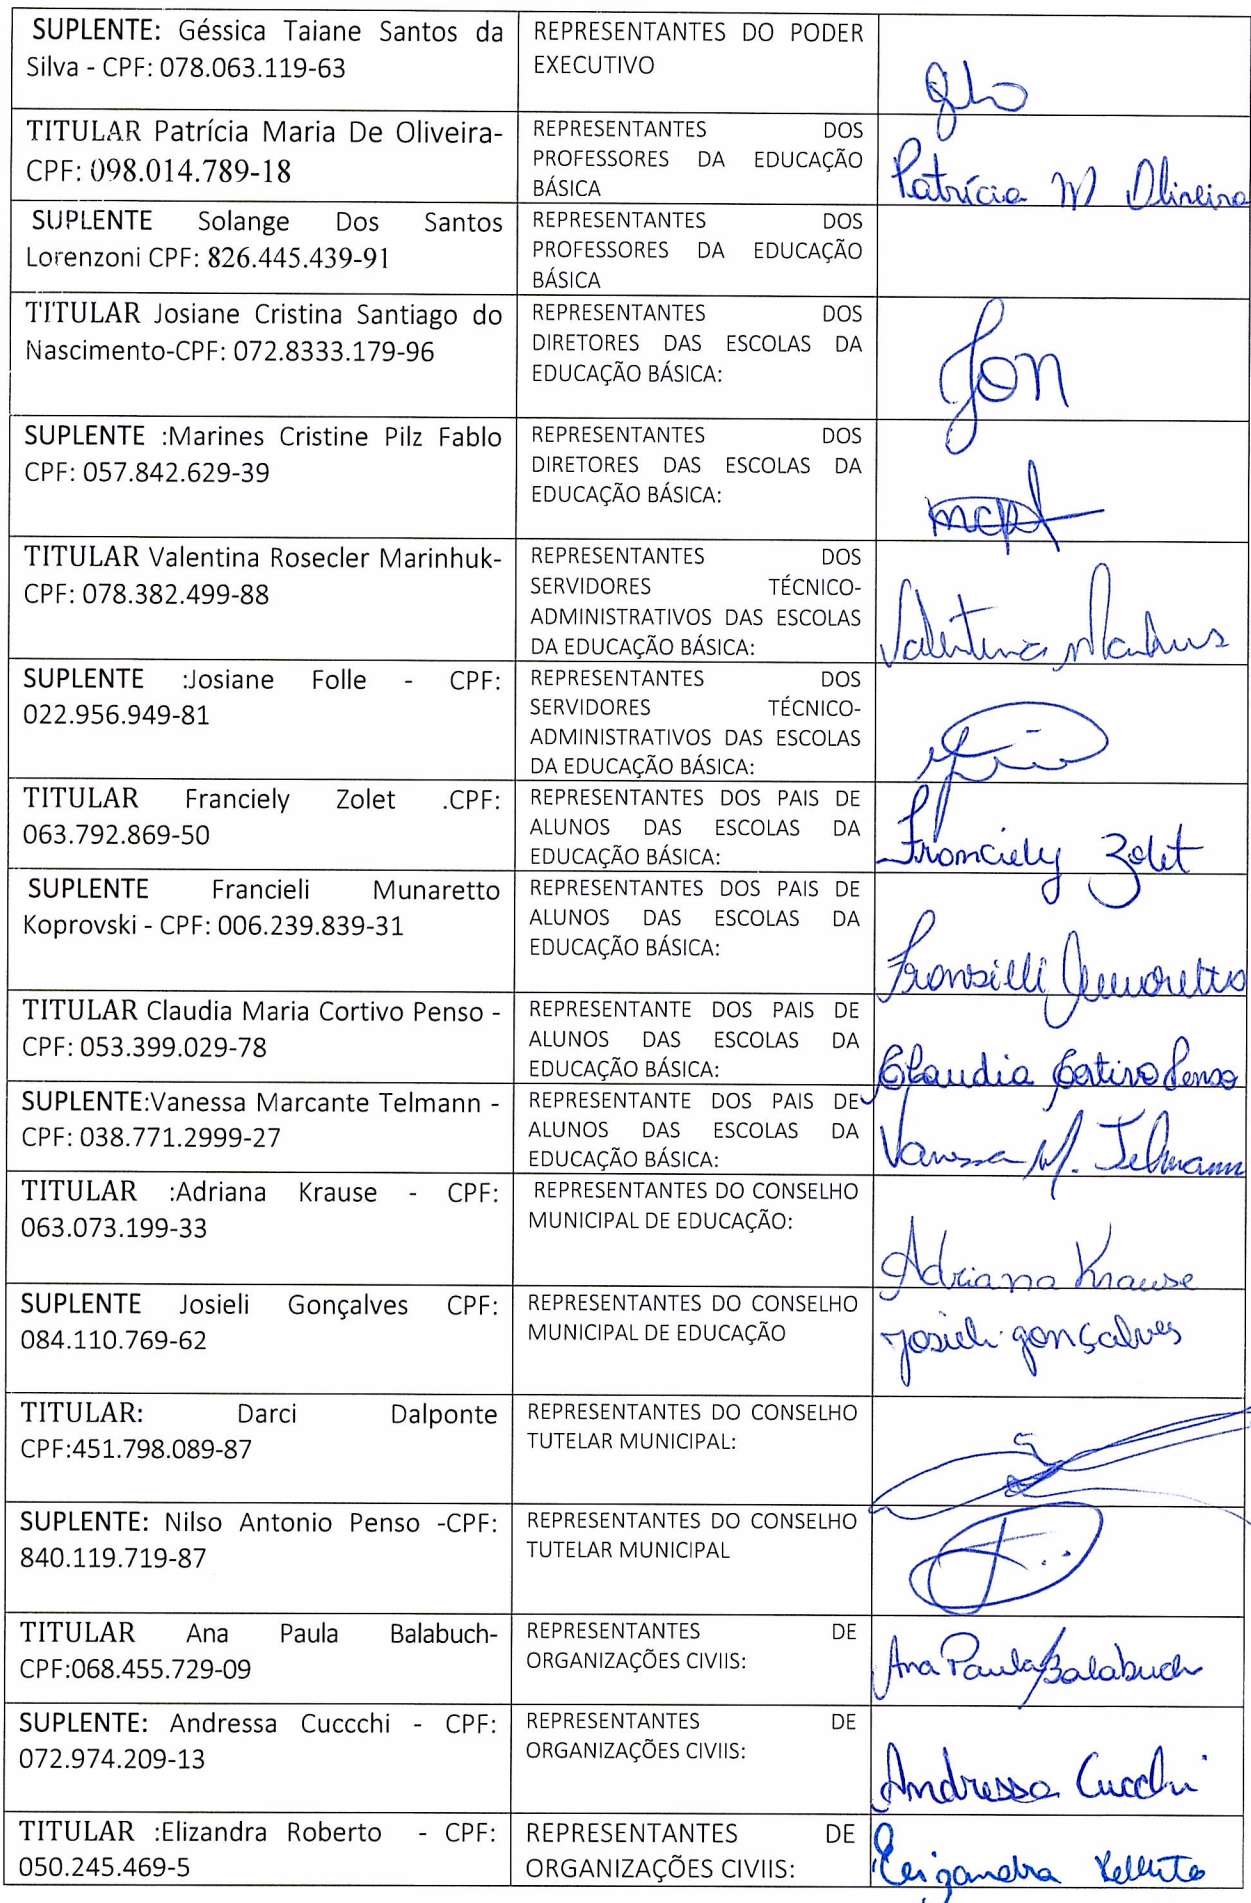 SUPLENTE: Géssica Taiane Santos da
Silva - CPF: 078.063.119-63
REPRESENTANTES DO PODER
EXECUTIVO
TITULAR Patrícia Maria De Oliveira-
CPF: 098.014.789-18
REPRESENTANTES DOS
PROFESSORES DA EDUCAÇÃO
BÁSICA
Patrícia M Oliveira
SUPLENTE Solange Dos Santos
Lorenzoni CPF: 826.445.439-91
REPRESENTANTES DOS
PROFESSORES DA EDUCAÇÃO
BÁSICA
TITULAR Josiane Cristina Santiago do
Nascimento-CPF: 072.8333.179-96
REPRESENTANTES DOS
DIRETORES DAS ESCOLAS DA
EDUCAÇÃO BÁSICA:
SUPLENTE :Marines Cristine Pilz Fablo
CPF: 057.842.629-39
REPRESENTANTES DOS
DIRETORES DAS ESCOLAS DA
EDUCAÇÃO BÁSICA:
TITULAR Valentina Rosecler Marinhuk-
CPF: 078.382.499-88
REPRESENTANTES DOS
SERVIDORES TÉCNICO-
ADMINISTRATIVOS DAS ESCOLAS
DA EDUCAÇÃO BÁSICA:
Valentina
SUPLENTE :Josiane Folle - CPF:
022.956.949-81
REPRESENTANTES DOS
SERVIDORES TÉCNICO-
ADMINISTRATIVOS DAS ESCOLAS
DA EDUCAÇÃO BÁSICA:
TITULAR Franciely Zolet .CPF:
063.792.869-50
REPRESENTANTES DOS PAIS DE
ALUNOS DAS ESCOLAS DA
EDUCAÇÃO BÁSICA:
Franciely Zolet
SUPLENTE Francieli Munaretto
Koprovski - CPF: 006.239.839-31
REPRESENTANTES DOS PAIS DE
ALUNOS DAS ESCOLAS DA
EDUCAÇÃO BÁSICA:
TITULAR Claudia Maria Cortivo Penso -
CPF: 053.399.029-78
REPRESENTANTE DOS PAIS DE
ALUNOS DAS ESCOLAS DA
EDUCAÇÃO BÁSICA:
Claudia Cortivo Penso
SUPLENTE:Vanessa Marcante Telmann -
CPF: 038.771.2999-27
REPRESENTANTE DOS PAIS DE
ALUNOS DAS ESCOLAS DA
EDUCAÇÃO BÁSICA:
Vanessa M. Telmann
TITULAR :Adriana Krause - CPF:
063.073.199-33
REPRESENTANTES DO CONSELHO
MUNICIPAL DE EDUCAÇÃO:
Adriana Krause
SUPLENTE Josieli Gonçalves CPF:
084.110.769-62
REPRESENTANTES DO CONSELHO
MUNICIPAL DE EDUCAÇÃO
Josieli gonçalves
TITULAR: Darci Dalponte
CPF:451.798.089-87
REPRESENTANTES DO CONSELHO
TUTELAR MUNICIPAL:
SUPLENTE: Nilso Antonio Penso -CPF:
840.119.719-87
REPRESENTANTES DO CONSELHO
TUTELAR MUNICIPAL
TITULAR Ana Paula Balabuch-
CPF:068.455.729-09
REPRESENTANTES DE
ORGANIZAÇÕES CIVIIS:
Ana Paula Balabuch
SUPLENTE: Andressa Cuccchi - CPF:
072.974.209-13
REPRESENTANTES DE
ORGANIZAÇÕES CIVIIS:
Andressa Cucchi
TITULAR :Elizandra Roberto - CPF:
050.245.469-5
REPRESENTANTES DE
ORGANIZAÇÕES CIVIIS: